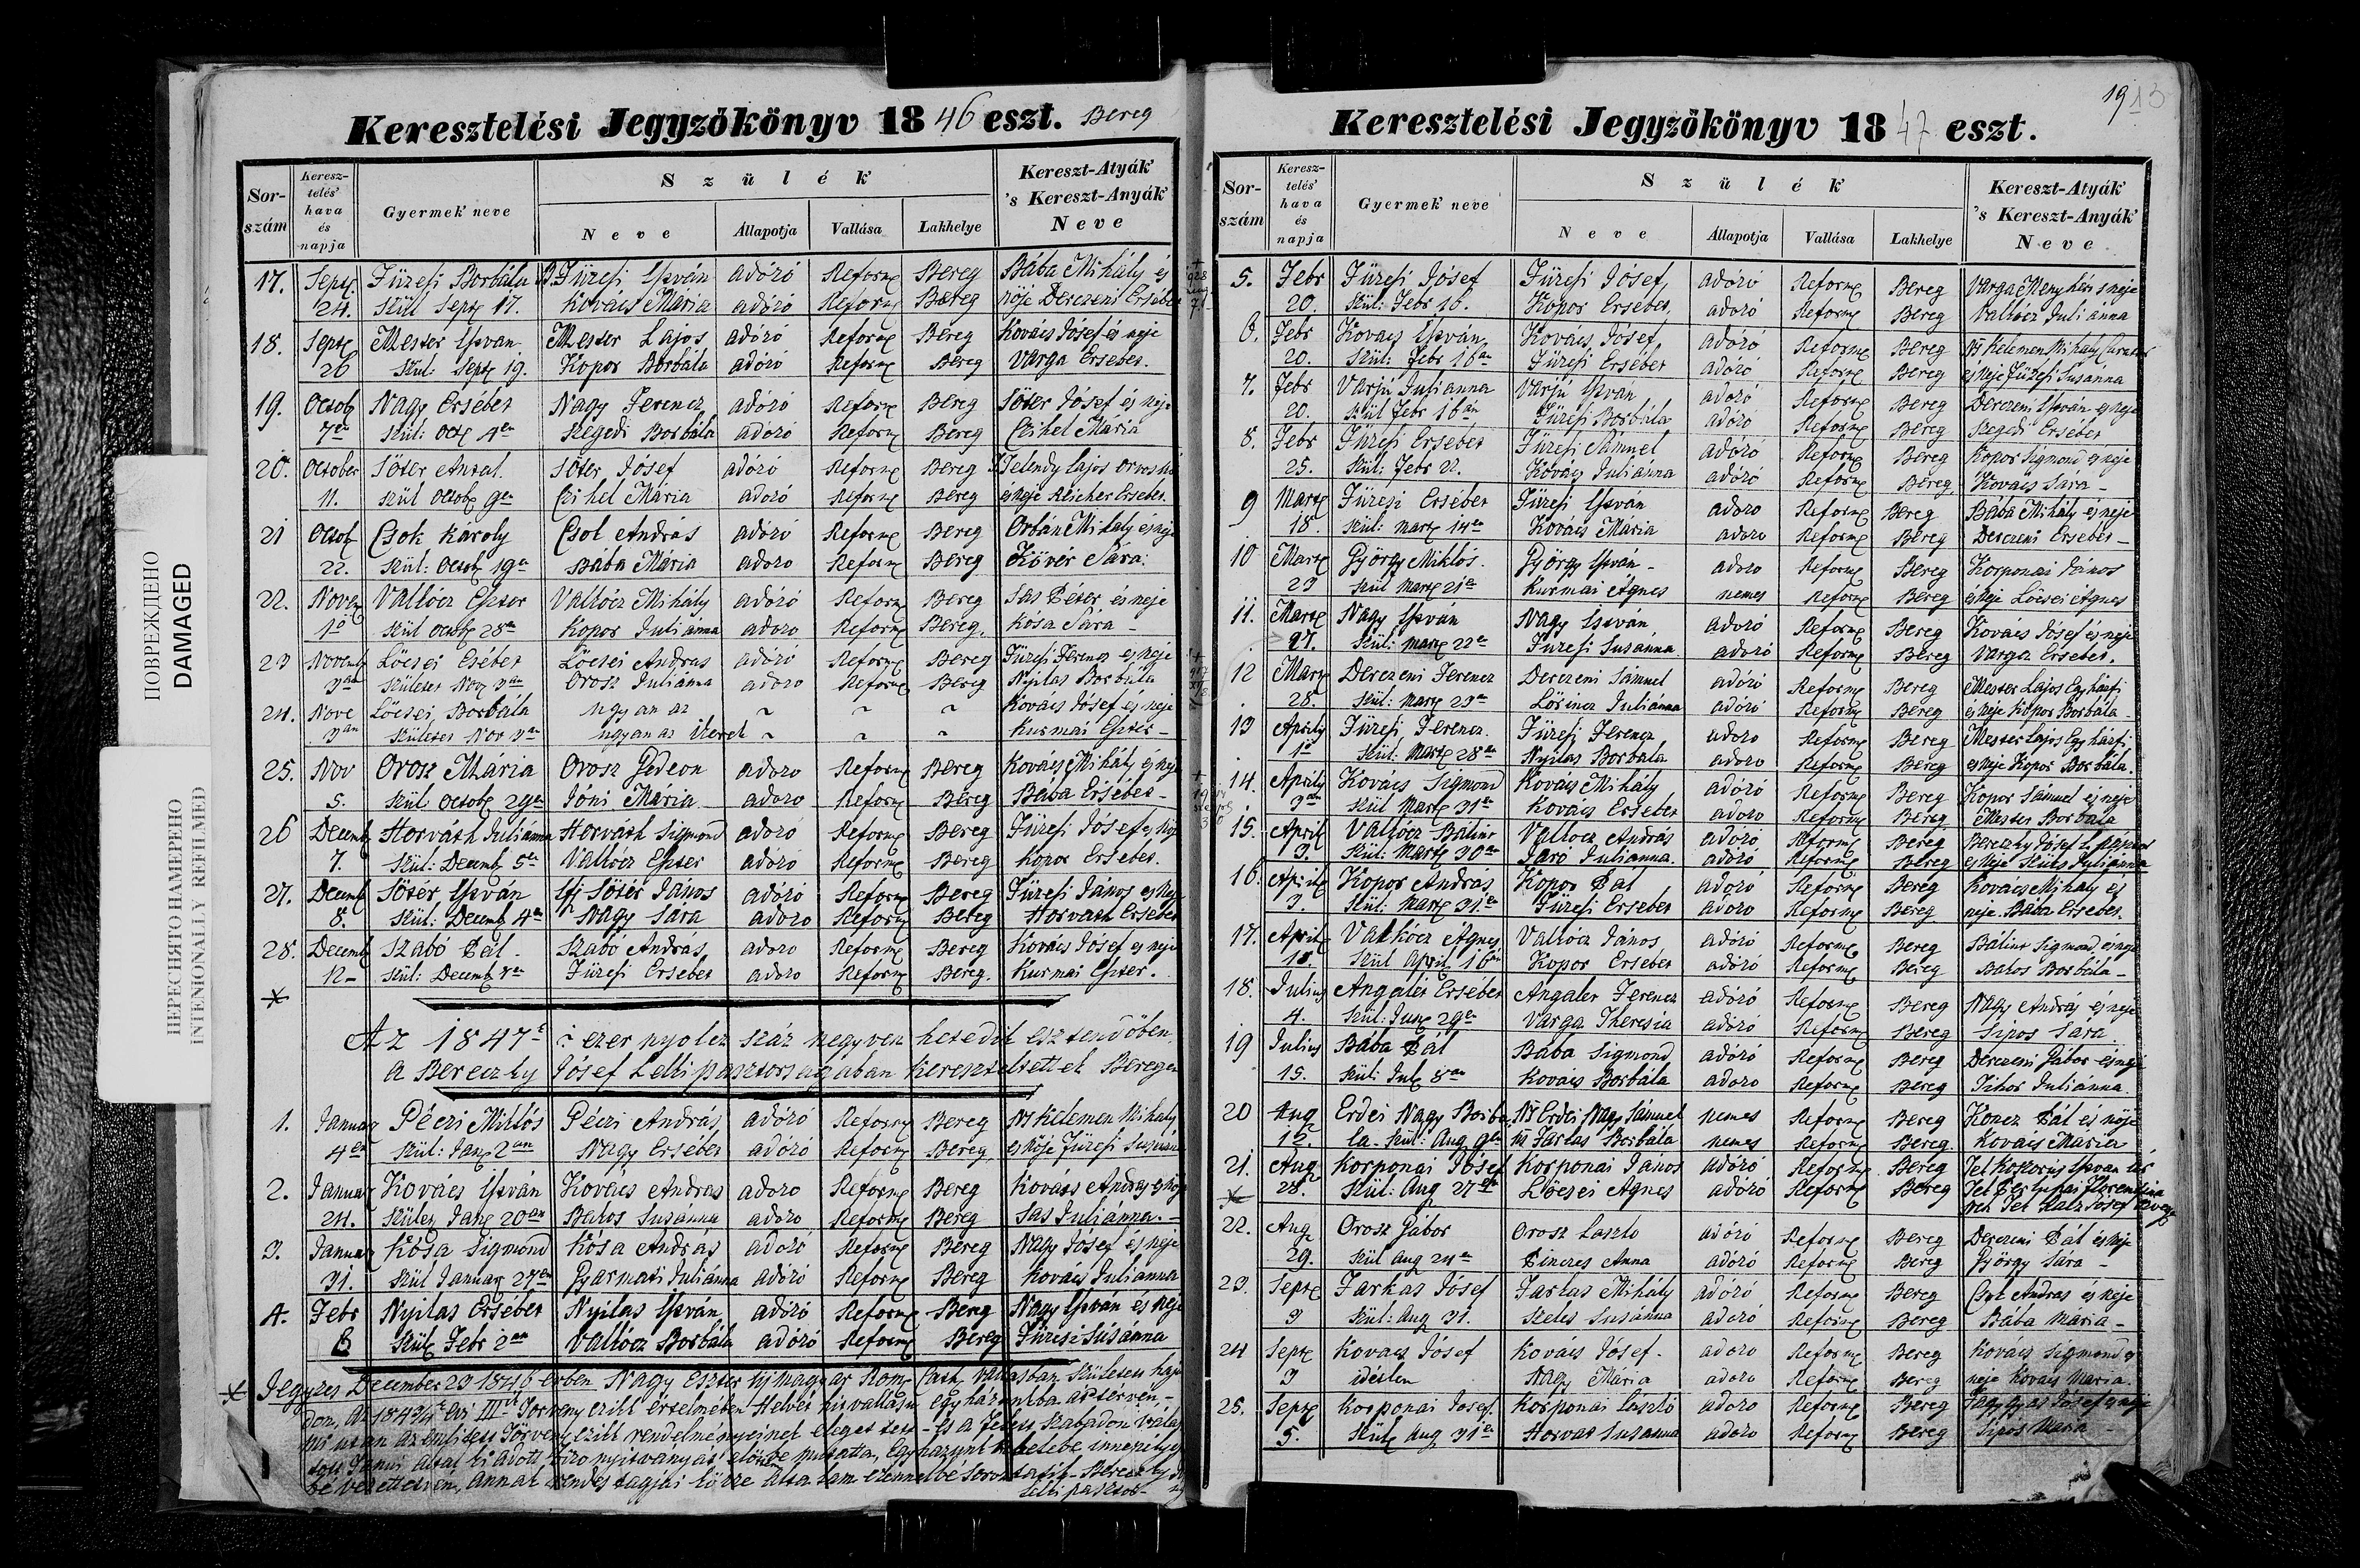 Keresztelési Jegyzőkönyv 1846 eszt. Bereg
Sor-szám
Keresz-telés' hava és napja
Gyermek' neve
Szülék'
Neve
Állapotja
Vallása
Lakhelye
Kereszt-Atyák' 's Kereszt-Anyák' Neve
17. Sept Füresi Borbála B. Füresi István adózó Reform Bereg Bába Mihály és
24. Szül Sept 17. Kovács Mária adózó Reform Bereg nője Derczeni Ersébet
18. Sept Mester István Mester Lajos adózó Reform Bereg Kovács Jósef és neje
26 Szül: Sept 19. Kopor Borbála adózó Reform Bereg Varga Ersébet.
19. Octob Nagy Ersébet Nagy Ferencz adózó Reform Bereg Sőter Jósef és neje
7en Szül: Oct 4en Szegedi Borbála adózó Reform Bereg Czikel Mária
20. October Sőter Antal. Sőter Jósef adózó Reform Bereg Telendy Lajos
11. Szül Octob 9en Czikel Mária adózó Reform Bereg és neje Reicher Ersébet.
21 Octob Csok Károly Csok András adózó Reform Bereg Orbán Mihály és neje
22. Szül: Octob 19en Bába Mária adozo Reform Bereg Kövér Sára.
22. Novem Vallócz Eszter Vallócz Mihály adózó Reform Bereg Sas Péter és neje
1ő Szül Octob 28en Kopor Juliánna adozo Reform Bereg. Kósa Sára –
23 Novemb Lőcsei Erséber Lőcsei András adózó Reform Bereg Füresi Ferencz és neje
3an Született Nov 3an Orosz Juliánna adozo Reform Bereg Nyilas Borbála
24. Nove Lőcsei Borbála ugyan az ~ ~ ~ Kovács Jósef és neje
3an Született Nov 3an ugyan az Ikrek ~ ~ ~ Kurmai Eszter –
25. Nov Orosz Mária Orosz Gedeon adozo Reform Bereg Kovács Mihály és neje
5. Szül Octob 29en Jóni Mária adozo Reform Bereg Bába Ersébet –
26 Decemb Horváth Juliánna Horváth Sigmond adozó Reform Bereg Füresi Jósef és neje
7. Szül: Decemb 5en Vallócz Eszter adózó Reform Bereg Kopor Ersébet.
27. Decemb Sőter István Ifj Sőter János adózó Reform Bereg Füresi János és neje
8. Szül: Decemb 4en Nagy Sára adozo Reform Bereg Horváth Ersébet
28. Decemb Szabó Pál. Szabó András adozo Reform Bereg Kovács Jósef és neje
12 – Szül: Decemb Füresi Ersébet adozo Reform Bereg. Kurmai Eszter.
Az 1847 ezer nyolcz száz negyven hetedik esztendőben
a Bereczky Jósef Lelki pásztorságában Kereszteltettek Beregen
1. Januar Péczi Miklós Péczi András adózó Reform Bereg Ns Kelemen Mihály
4en Szül: Jan 2an Nagy Ersébet adózó Reform Bereg, és nője Füresi Susánna
2. Januar Kovács István Kovács András adozo Reform Bereg Kovács András és nője
24. Szület Jan 20an Susánna adózo Reform Bereg Sas Juliánna. –
3. Januar Kósa Sigmond Kósa András adózó Reform Bereg Nagy Jósef és neje
31. Szül Januar 27en Gyarmati Juliánna adózó Reform Bereg Kovács Julianna
4. Febr Nyilas Ersébet Nyilas István adózó Reform Bereg Nagy István és neje
6 Szül Febr 2an Vallócz Borbála adózó Reform Bereg Füresi Susánna
Jegyzés December 29 1846 évben Nagy Eszter Róm Cath. vallásban Született haja
don, Az 1843/4 évi III Törvény czikk értelmében Helvét hitvallású Egyházunkba
után az említett Törvény czikk rendelményeinek eleget tett – és a
által ki adott bizonyítványát előmbe mutatta, Egyházunk kebelébe
be vétettetvén, Annak rendes tagjai közzé Általam ezennel bé soroztatik – Bereczky
Lelki pásztor –
1913
Keresztelési Jegyzőkönyv 1847 eszt.
Sor-szám
Keresz-telés' hava és napja
Gyermek' neve
Szülék'
Neve
Állapotja
Vallása
Lakhelye
Kereszt-Atyák' 's Kereszt-Anyák' Neve
5. Febr Füresi Jósef Füresi Jósef, adózó Reform Bereg Varga Menyhért s neje
20. Szül: Febr 16. Kopor Ersébet, adozó Reform Bereg Vallócz Juliánna
6. Febr Kovács István Kovács Jósef, adózó Reform Bereg Ns Kelemen Mihály Curator
20. Szül: Febr 16an Füresi Ersébet adózó Reform Bereg és neje Füresi Susánna
7. Febr Varjú Julianna Varjú István adozó Reform Bereg Derczeni István és neje
20. Szül Febr 16án Füresi Borbála adozó Reform Bereg Szegedi Ersébet
8. Febr Füresi Ersébet Füresi Sámuel adózó Reform Bereg Kopor Sigmond és neje
25. Szül: Febr 22. Kovács Julianna adózó Reform Bereg, Kovács Sára –
9 Mart Füresi Ersébet Füresi István adozo Reform Bereg Bába Mihály és neje
18. Szül: Mart 14en Kovács Mária adozo Reform Bereg Derczeni Ersébet –
10 Mart György Miklós. György István – adozo Reform Bereg Korponai János
23 Szül Mart 21en Kurmai Ágnes nemes Reform Bereg és neje Lőcsei Agnes
11. Mart Nagy István Nagy István adozó Reform Bereg Kovács Jósef és neje
27. Szül: Mart 22en Füresi Susánna adozó Reform Bereg Varga Ersébet.
12 Mart Derczeni Ferencz Derczeni Sámuel adózó Reform Bereg Mester Lajos Egyházfi
28. Szül: Mart 23an Lőrincz Juliánna adózó Reform Bereg és neje Kopor Borbála
13 April Füresi Ferencz. Füresi Ferencz adozo Reform Bereg Mester Lajos Egyházfi
1ő Szül: Mart 28an Nyilas Borbála adozo Reform Bereg és neje Kopor Borbála.
14. April Kovács Sigmond Kovács Mihály adózó Reform Bereg Kopor Sámuel és neje
3an Szül Mart 31en Kovács Ersébet adozo Reform Bereg Mester Borbála
15. April Vallócz Bálint Vallócz András adózó Reform Bereg Bereczky Jósef L. Pásztor
3. Szül: Mart 30an Juliánna adózó Reform Bereg és neje Szűts Julianna
16. April Kopor András Kopor Pál adózó Reform Bereg Kovács Mihály és
3. Szül: Mart 31en Füresi Ersébet adozo Reform Bereg neje Bába Ersébet.
17. April Valkócz Agnes Vallócz János adózó Reform Bereg Bálint Sigmond és neje
18. Szül April 16an Kopor Ersébet adózó Reform Bereg Bakos Borbála –
18. Julius Angaler Ersébet Angaler Ferencz adózó Reform Bereg Nagy András és neje
4. Szül: Jun 29en Varga Theresia adózó Reform Bereg Sipos Sára
19 Julius Bába Pál Bába Sigmond adózó Reform Bereg Derczeni Gábor és neje
15. Szül: Jul 8an Kovács Borbála adozo Reform Bereg Tibor Juliánna
20 Aug Erdei Nagy Borbá Ns Erdei Nagy Sámuel nemes Reform Bereg Koncz Pál és nője
12 la – Szül: Aug 9en Ns Farkas Borbála nemes Reform Bereg. Kovács Mária
21. Aug Korponai Jósef Korponai János adózó Reform Bereg Tek István úr
28. Szül: Aug 27en Lőcsei Agnes adózó Reform Bereg Tek Florentina
Tek Jósef özvegye
22. Aug Orosz Gábor Orosz Laszlo adózó Reform Bereg Derczeni Pál és neje
29. Szül Aug 24en Pinczés Anna adózó Reform Bereg György Sára –
23. Sept Farkas Jósef Farkas Mihály adózó Reform Bereg Csok András és neje
3 Szül: Aug 31. Szeles Susánna adózó Reform Bereg Bába Mária –
24 Sept Kovács Jósef Kovács Jósef. adozo Reform Bereg Kovács Sigmond és
3 idétlen Nagy Mária adozo Reform Bereg neje Kovács Mária.
25. Sept Korponai Josef. Korponai László adozo Reform Bereg Faggyas Jósef és neje
5. Szül Aug 31en Horvát Susánna adozo Reform Bereg Sipos Mária –
ПОВРЕЖДЕНО
DAMAGED
ПЕРЕСНЯТО НАМЕРЕНО
INTENIONALLY REFILMED